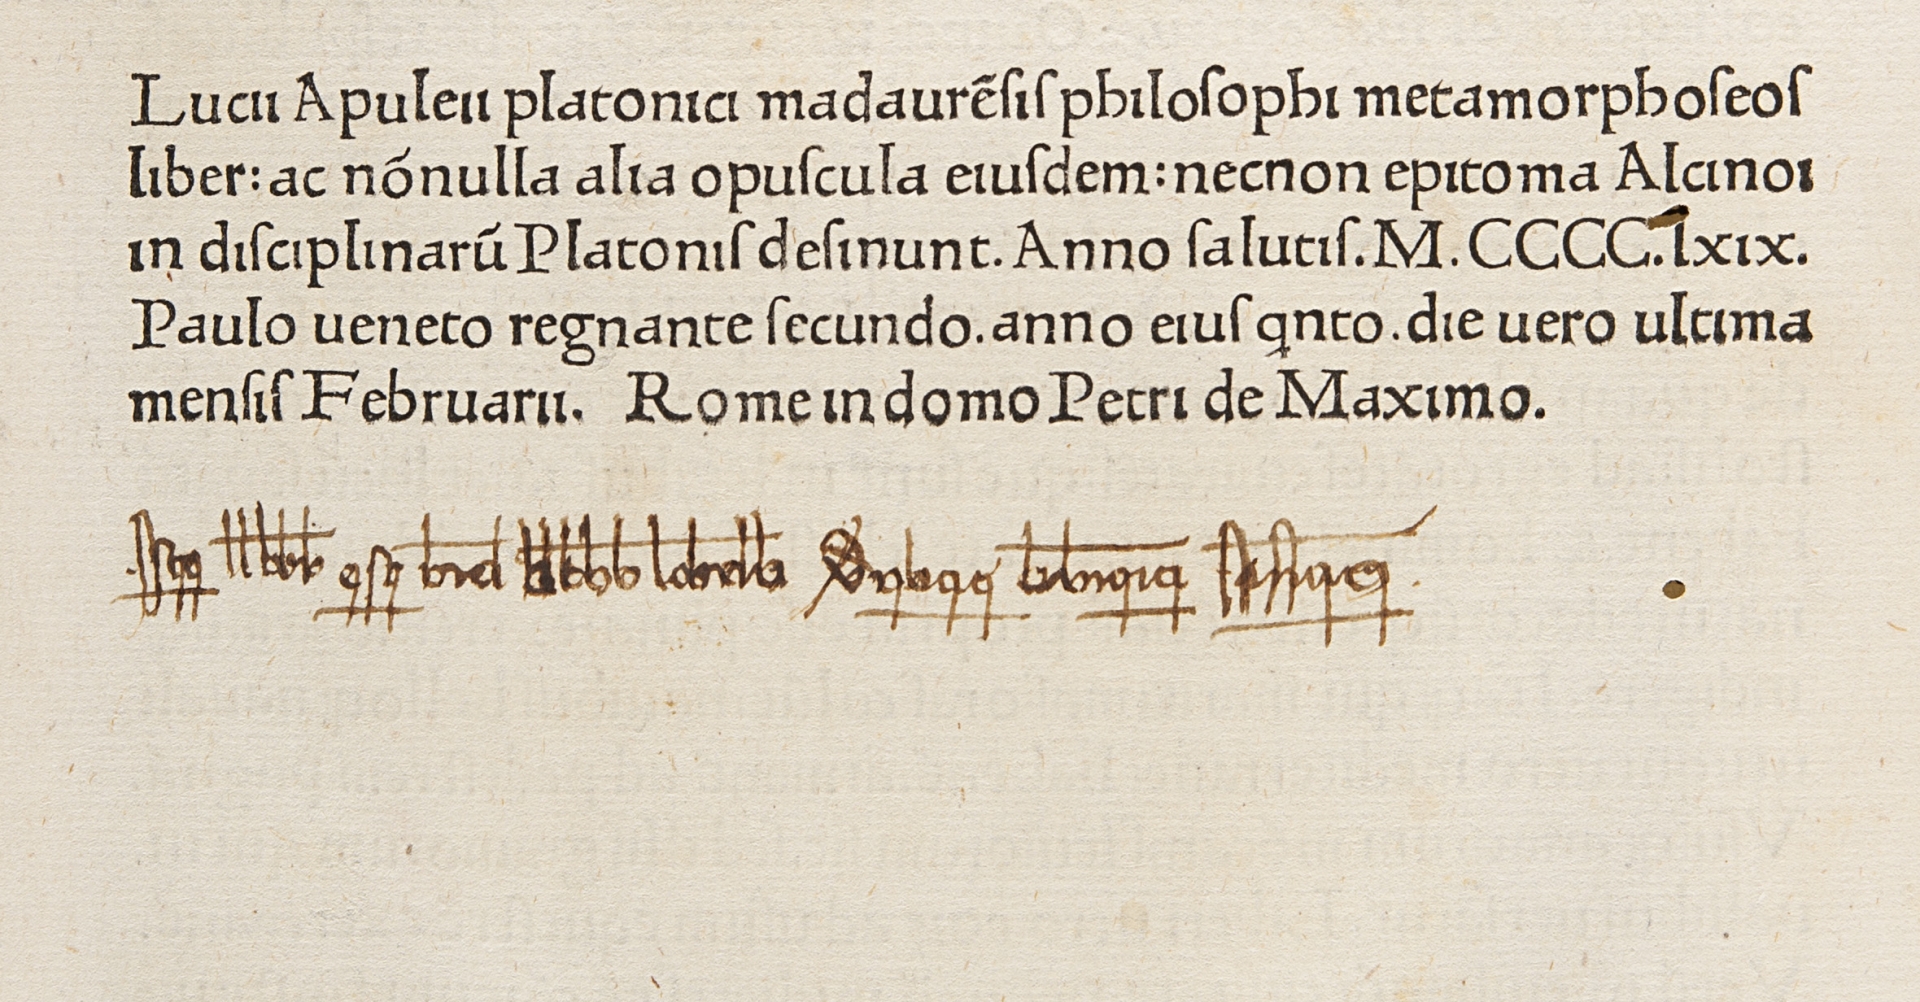 Lucii Apuleii platonici madaurēſiſ philoſophi metamorphoſeoſ
liber: ac nónulla alia opuſcula eiuſdem: necnon epitoma Alcinoi
in diſciplinarū Platoniſ deſinunt. Anno ſalutiſ. M. CCCC. lxix.
Paulo ueneto regnante ſecundo. anno eiuſ qnto. die uero ultima
menſiſ Februarii. Rome in domo Petri de Maximo.